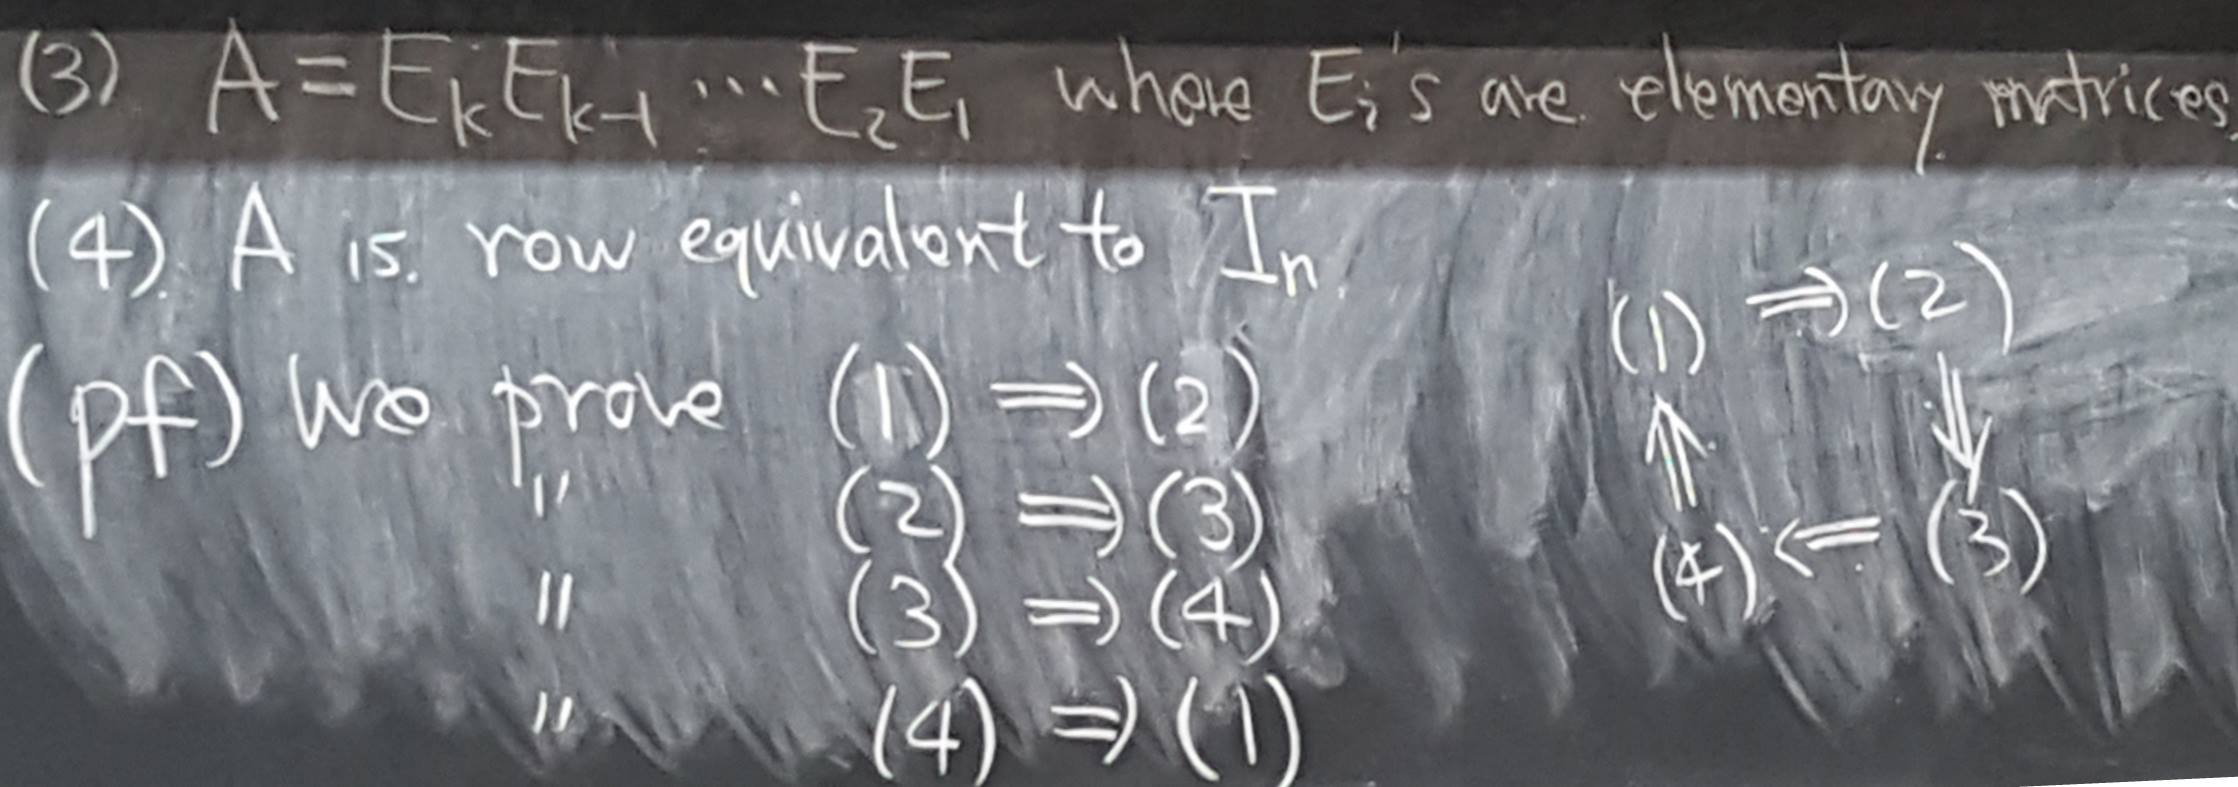 (3) A = E_k E_{k-1} ... E_2 E_1 where E_i's are elementary matrices
(4). A is. row equivalent to I_n.
(pf) We prove (1) ⇒ (2)
" (2) ⇒ (3)
" (3) ⇒ (4)
" (4) ⇒ (1)
(1) ⇒ (2)
⇑ ⇓
(4) ⇐ (3)